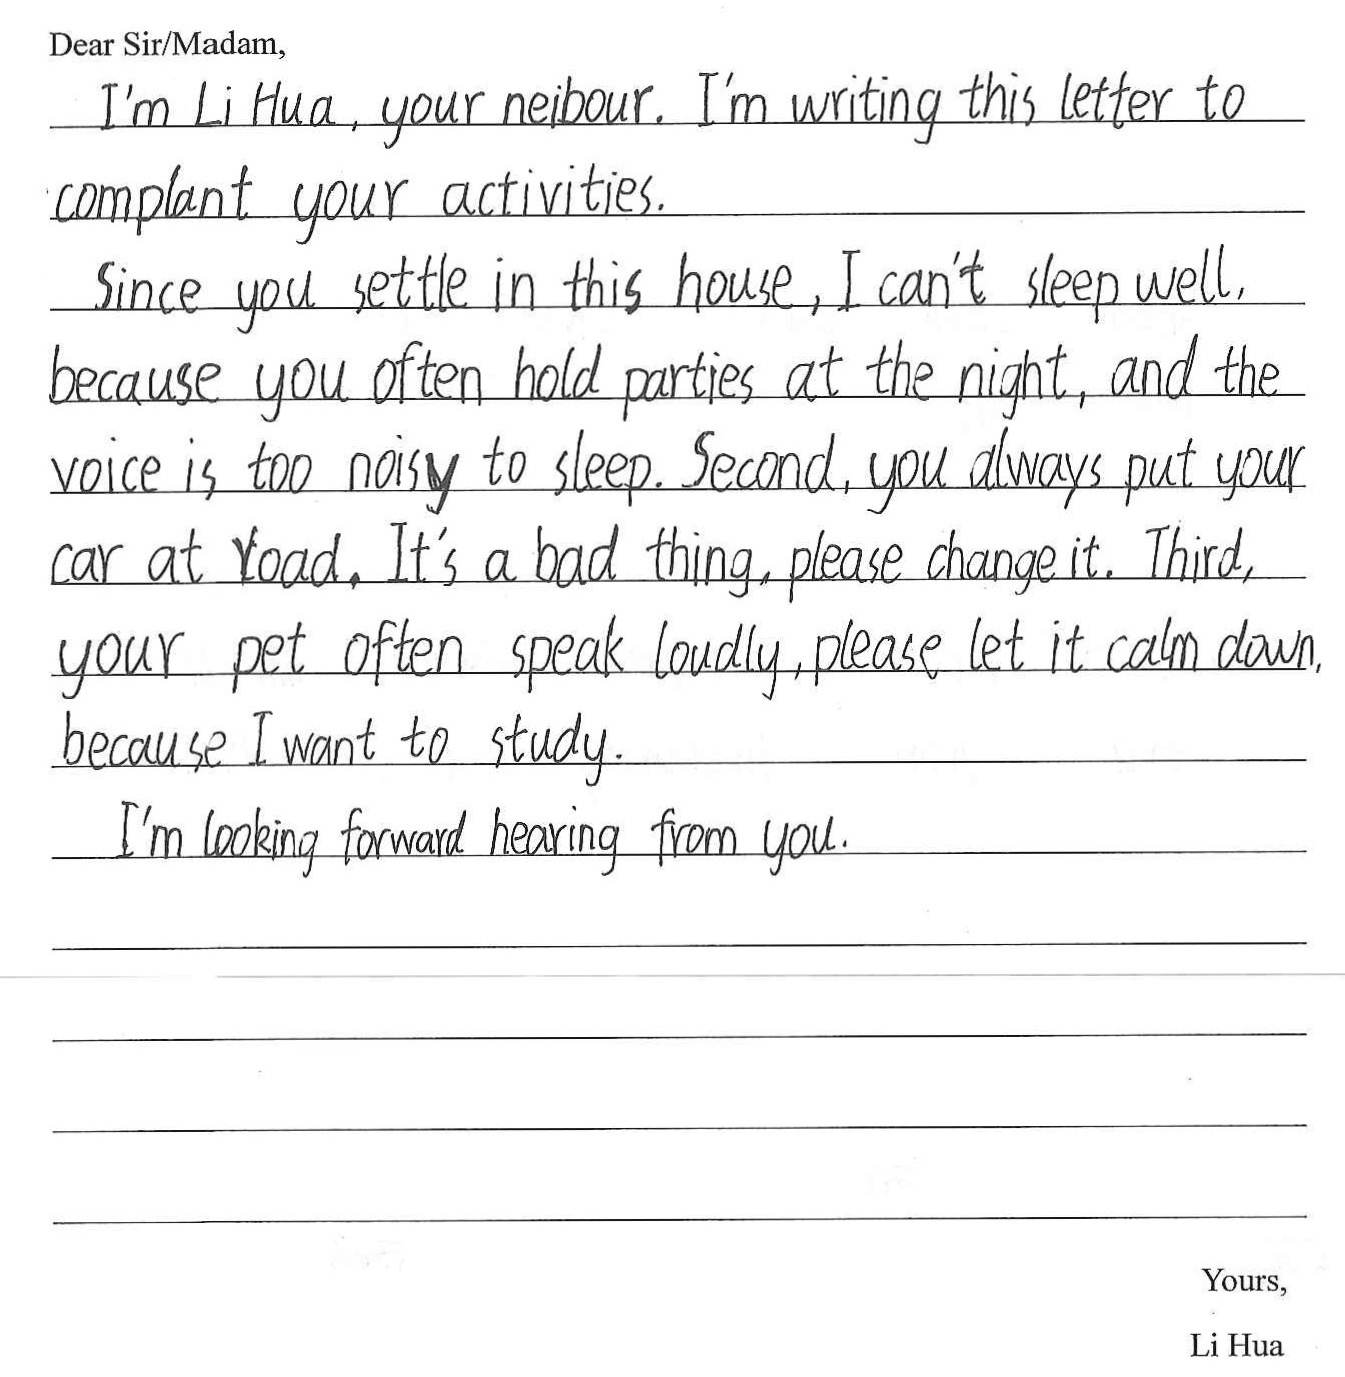 Dear Sir/Madam,
I'm Li Hua, your neibour. I'm writing this letter to
complant your activities.
Since you settle in this house, I can't sleep well,
because you often hold parties at the night, and the
voice is too noisy to sleep. Second, you always put your
car at road. It's a bad thing, please change it. Third,
your pet often speak loudly, please let it calm down,
because I want to study.
I'm looking forward hearing from you.
Yours,
Li Hua